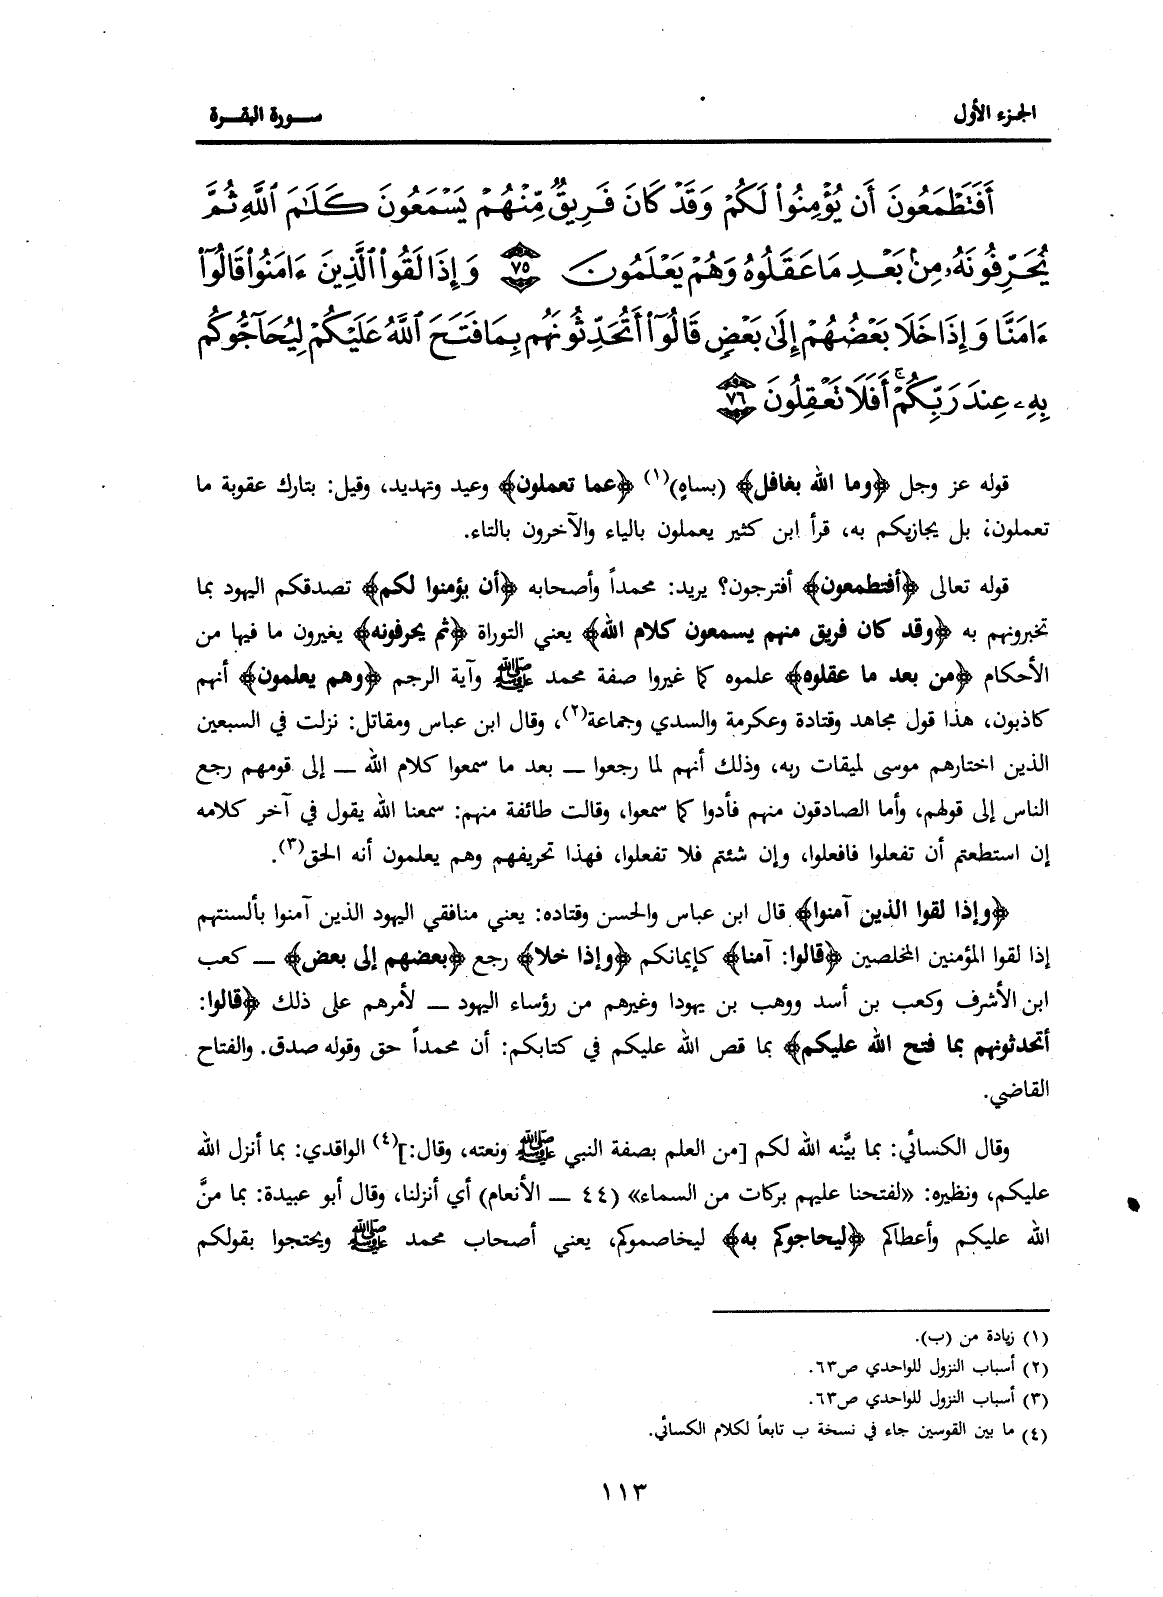 الجزء الأول
سورة البقرة
أَفَتَطْمَعُونَ أَن يُؤْمِنُوا۟ لَكُمْ وَقَدْ كَانَ فَرِيقٌ مِّنْهُمْ يَسْمَعُونَ كَلَٰمَ ٱللَّهِ ثُمَّ
يُحَرِّفُونَهُۥ مِنۢ بَعْدِ مَا عَقَلُوهُ وَهُمْ يَعْلَمُونَ ٧٥ وَإِذَا لَقُوا۟ ٱلَّذِينَ ءَامَنُوا۟ قَالُوٓا۟
ءَامَنَّا وَإِذَا خَلَا بَعْضُهُمْ إِلَىٰ بَعْضٍ قَالُوٓا۟ أَتُحَدِّثُونَهُم بِمَا فَتَحَ ٱللَّهُ عَلَيْكُمْ لِيُحَآجُّوكُم
بِهِۦ عِندَ رَبِّكُمْ ۚ أَفَلَا تَعْقِلُونَ ٧٦
قوله عز وجل ﴿وما الله بغافل﴾ (بساهٍ)(١) ﴿عما تعملون﴾ وعيد وتهديد، وقيل: بتارك عقوبة ما
تعملون؛ بل يجازيكم به، قرأ ابن كثير يعملون بالياء والآخرون بالتاء.
قوله تعالى ﴿أفتطمعون﴾ أفترجون؟ يريد: محمداً وأصحابه ﴿أن يؤمنوا لكم﴾ تصدقكم اليهود بما
تخبرونهم به ﴿وقد كان فريق منهم يسمعون كلام الله﴾ يعني التوراة ﴿ثم يحرفونه﴾ يغيرون ما فيها من
الأحكام ﴿من بعد ما عقلوه﴾ علموه كما غيروا صفة محمد ﷺ وآية الرجم ﴿وهم يعلمون﴾ أنهم
كاذبون، هذا قول مجاهد وقتادة وعكرمة والسدي وجماعة(٢)، وقال ابن عباس ومقاتل: نزلت في السبعين
الذين اختارهم موسى لميقات ربه، وذلك أنهم لما رجعوا ــ بعد ما سمعوا كلام الله ــ إلى قومهم رجع
الناس إلى قولهم، وأما الصادقون منهم فأدوا كما سمعوا، وقالت طائفة منهم: سمعنا الله يقول في آخر كلامه
إن استطعتم أن تفعلوا فافعلوا، وإن شئتم فلا تفعلوا، فهذا تحريفهم وهم يعلمون أنه الحق(٣).
﴿وإذا لقوا الذين آمنوا﴾ قال ابن عباس والحسن وقتاده: يعني منافقي اليهود الذين آمنوا بألسنتهم
إذا لقوا المؤمنين المخلصين ﴿قالوا: آمنا﴾ كإيمانكم ﴿وإذا خلا﴾ رجع ﴿بعضهم إلى بعض﴾ ــ كعب
ابن الأشرف وكعب بن أسد ووهب بن يهودا وغيرهم من رؤساء اليهود ــ لأمرهم على ذلك ﴿قالوا:
أتحدثونهم بما فتح الله عليكم﴾ بما قص الله عليكم في كتابكم: أن محمداً حق وقوله صدق. والفتاح
القاضي.
وقال الكسائي: بما بيَّنه الله لكم [من العلم بصفة النبي ﷺ ونعته، وقال:](٤) الواقدي: بما أنزل الله
عليكم، ونظيره: «لفتحنا عليهم بركات من السماء» (٤٤ ــ الأنعام) أي أنزلنا، وقال أبو عبيدة: بما منَّ
الله عليكم وأعطاكم ﴿ليحاجوكم به﴾ ليخاصموكم، يعني أصحاب محمد ﷺ ويحتجوا بقولكم
(١) زيادة من (ب).
(٢) أسباب النزول للواحدي ص٦٣.
(٣) أسباب النزول للواحدي ص٦٣.
(٤) ما بين القوسين جاء في نسخة ب تابعاً لكلام الكسائي.
١١٣